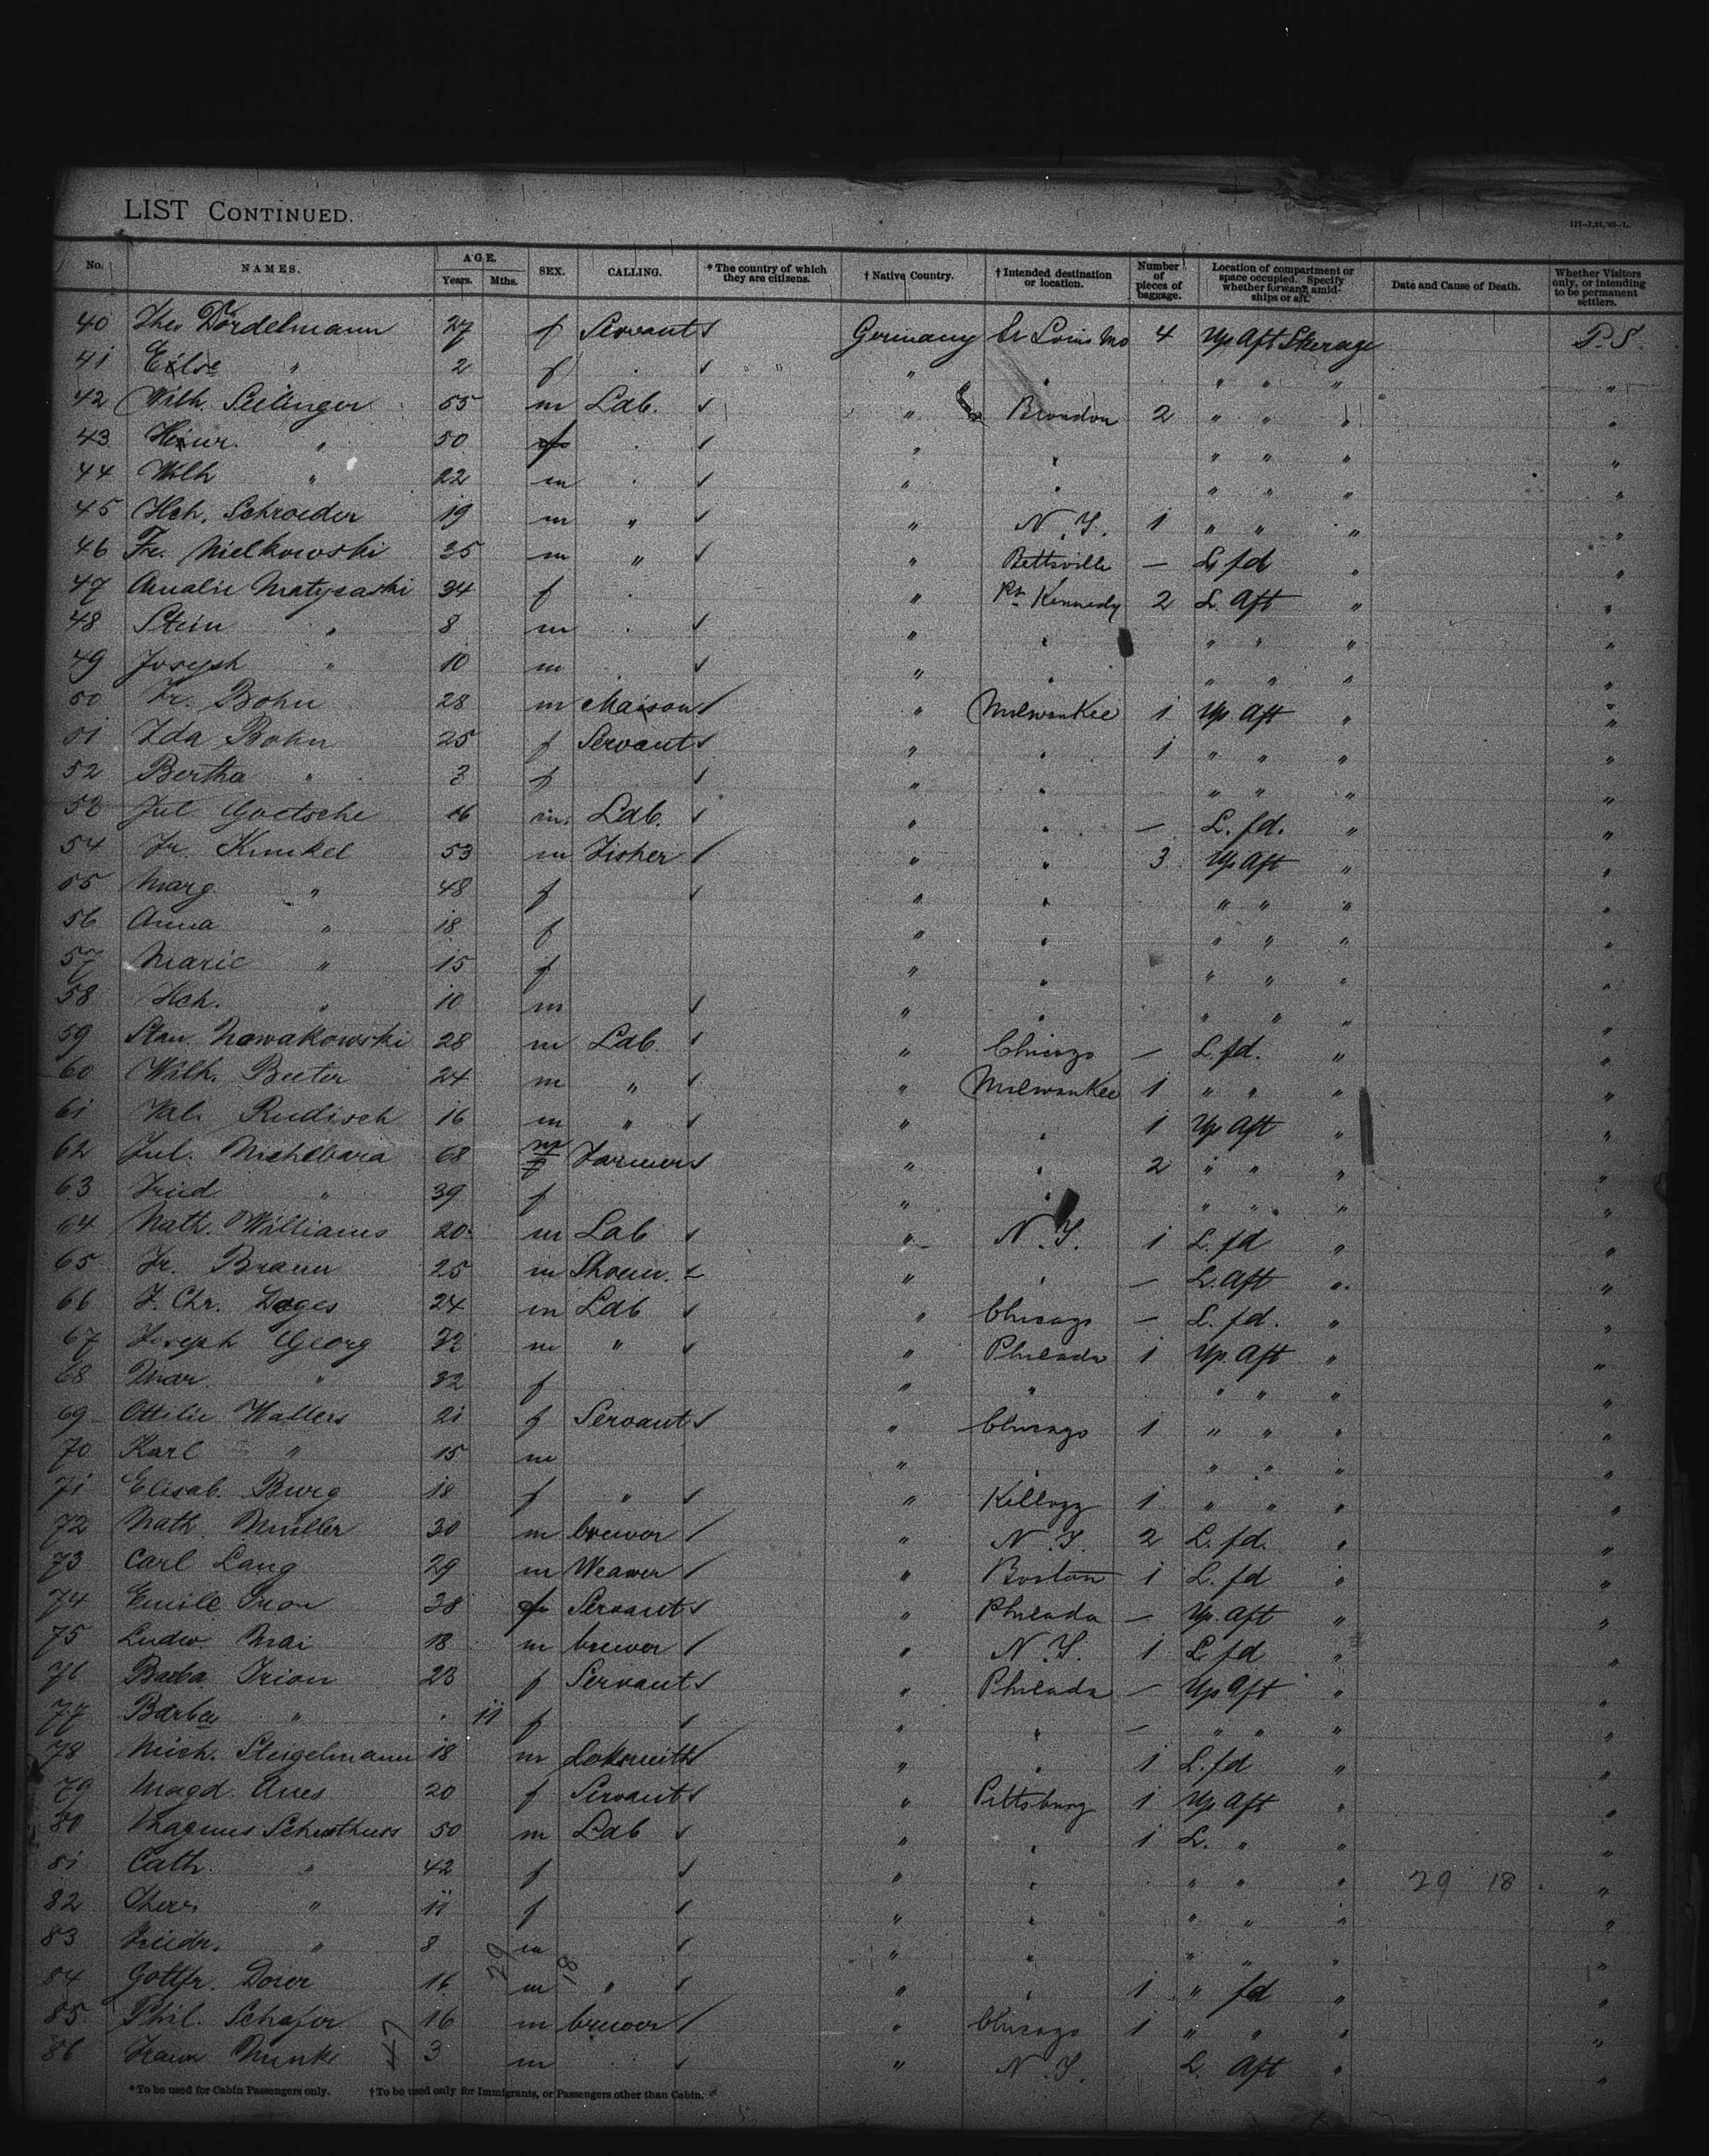 LIST CONTINUED.
No. NAMES. AGE. Years. Mths. SEX. CALLING. * The country of which they are citizens. † Native Country. † Intended destination or location. Number of pieces of baggage. Location of compartment or space occupied. Specify whether forward, amidships or aft. Date and Cause of Death. Whether Visitors only, or intending to be permanent settlers.
40 Dördelmann 27 f Servant Germany St Louis Mo 4 Up Aft Steerage P.S.
41 Else " 2 f " " " " " "
42 Wilh. Seilinger 55 m Lab. " Brandon 2 " " " "
43 " 50 f " " " " " "
44 Wilh " 22 m " " " " " "
45 Hch. Schroeder 19 m " " N.Y. 1 " " " "
46 Fr. Mielkowski 35 m " " Bettsville — L fd " "
47 Amalie 34 f " Kennedy 2 L. Aft " "
48 Stein " 8 m " " " " " "
49 Joseph " 10 m " " " " " "
50 Fr. Bohn 28 m Mason " Milwaukee 1 Up Aft " "
51 Ida Bohn 25 f Servant " " 1 " " " "
52 Bertha " 3 f " " " " " "
53 Jul. Goetsche 16 m. Lab. " " — L. fd. " "
54 Fr. Kunkel 53 m Fisher " " 3 Up Aft " "
55 Marg " 48 f " " " " " "
56 Anna " 18 f " " " " " "
57 Marie " 15 f " " " " " "
58 Hch. " 10 m " " " " " "
59 Stan. Nowakowski 28 m Lab " Chicago — L. fd. " "
60 Wilh. Beeter 24 m " " Milwaukee 1 " " " "
61 Rudisch 16 m " " " 1 Up Aft " "
62 Jul. 68 Farmer " " 2 " " " "
63 Fried " 39 f " " " " " "
64 Nath. Williams 20 m Lab " N.Y. 1 L. fd " "
65 Fr. Braun 25 m Shoem. " " — L. Aft " "
66 J. Chr. 24 m Lab " Chicago — L. fd. " "
67 Joseph Georg 32 m " " Philada 1 Up. Aft " "
68 Mar. " 32 f " " " " " "
69 Ottilie Walters 21 f Servant " Chicago 1 " " " "
70 Karl " 15 m " " " " " "
71 Elisab. Burg 18 f " " Kellogg 1 " " " "
72 Nath. Müller 30 m brewer " N.Y. 2 L. fd. " "
73 Carl Lang 29 m Weaver " Boston 1 L. fd " "
74 Emile 38 f Servant " Philada — Up. Aft " "
75 Ludw. Mai 18 m brewer " N.Y. 1 L fd " "
76 Barba Irion 23 f Servant " Philada — Up Aft " "
77 Barba " 11 f " " — " " " "
78 Mich. Steigelmann 18 m Loksmith " " 1 L. fd " "
79 Magd. 20 f Servant " Pittsburg 1 Up Aft " "
80 Magnus 50 m Lab " " 1 L. " " "
81 Cath. " 42 f " " " " " 29 18 "
82 Ther. " 11 f " " " " " "
83 Friedr. " 8 m " " " " " "
84 Gottfr. 16 m " " " 1 " fd " "
29 18
85 Phil. Schafer 16 m brewer " Chicago 1 " " " "
86 Munk 3 m " N.Y. L. Aft " "
47
*To be used for Cabin Passengers only. †To be used only for Immigrants, or Passengers other than Cabin.